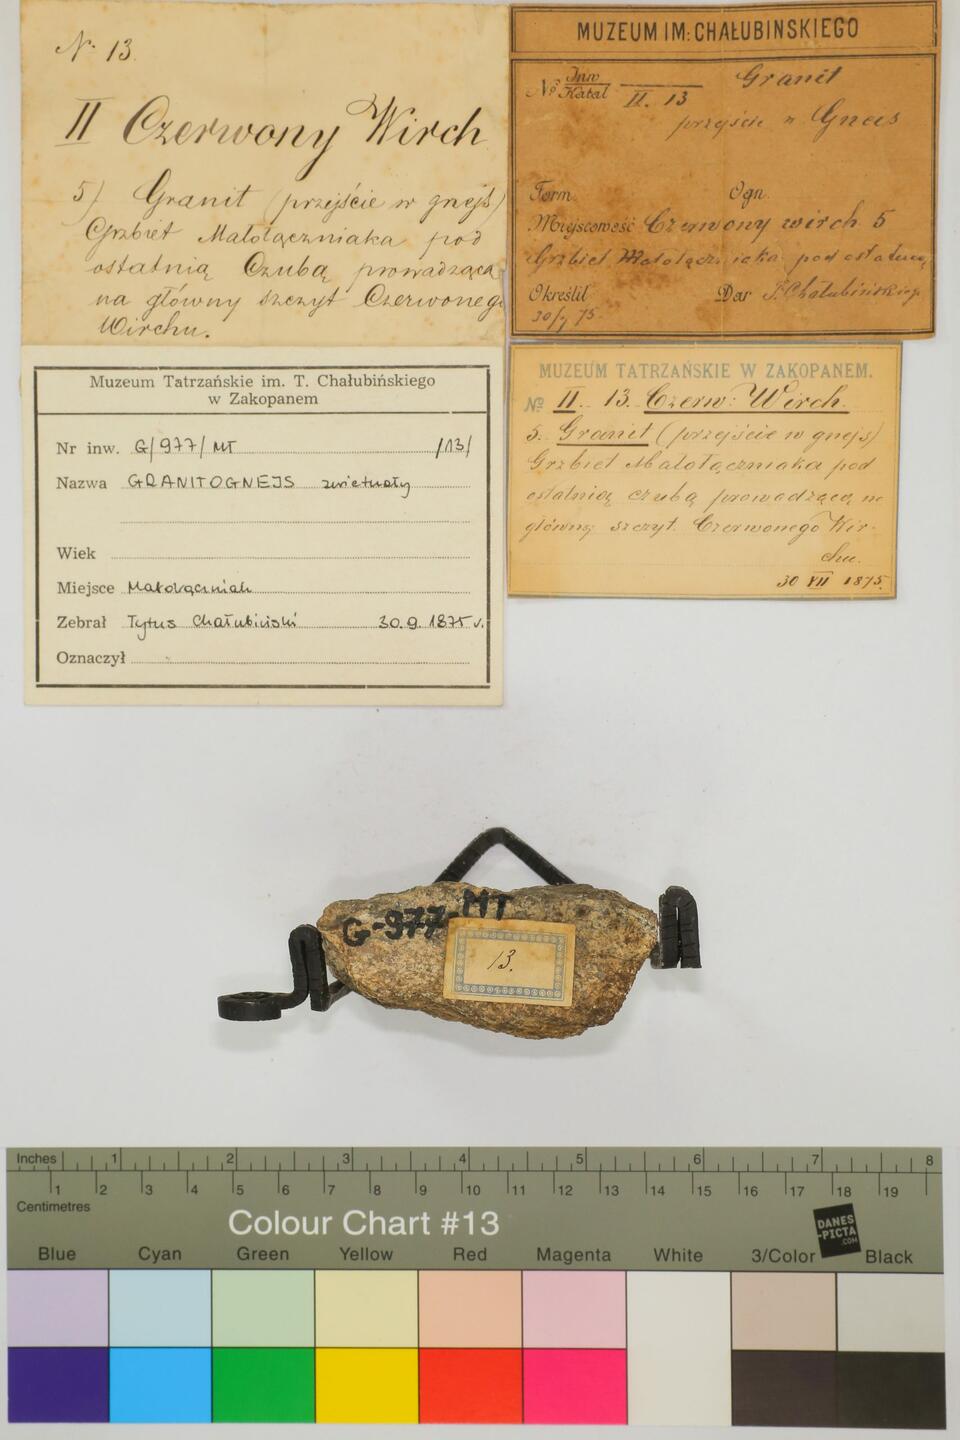 N. 13
II Czerwony Wirch
5) Granit (przejście w gnejs)
Grzbiet Małołączniaka pod
ostatnią Czubą prowadzącą
na główny szczyt Czerwonego
Wirchu.
MUZEUM IM: CHAŁUBINSKIEGO
No Inw Katal II. 13 Granit
przejście w Gneis
Form. Ogn.
Miejscowość Czerwony wirch 5
Grzbiet Małołączniaka pod ostatnią
Określił Dar T. Chałubińskiego
75.
Muzeum Tatrzańskie im. T. Chałubińskiego
w Zakopanem
Nr inw. G/977/MT /13/
Nazwa GRANITOGNEJS zwietrzały
Wiek
Miejsce Małołączniak
Zebrał Tytus Chałubiński 30.9.1875 r.
Oznaczył
MUZEUM TATRZAŃSKIE W ZAKOPANEM.
No II. 13. Czerw: Wirch.
5. Granit (przejście w gnejs)
Grzbiet Małołączniaka pod
ostatnią czubą prowadzącą na
główny szczyt Czerwonego Wir-
chu.
30 VII 1875.
G-977-MT
13.
Inches 1 2 3 4 5 6 7 8
1 2 3 4 5 6 7 8 9 10 11 12 13 14 15 16 17 18 19
Centimetres
Colour Chart #13
DANES
-PICTA
.COM
Blue Cyan Green Yellow Red Magenta White 3/Color Black